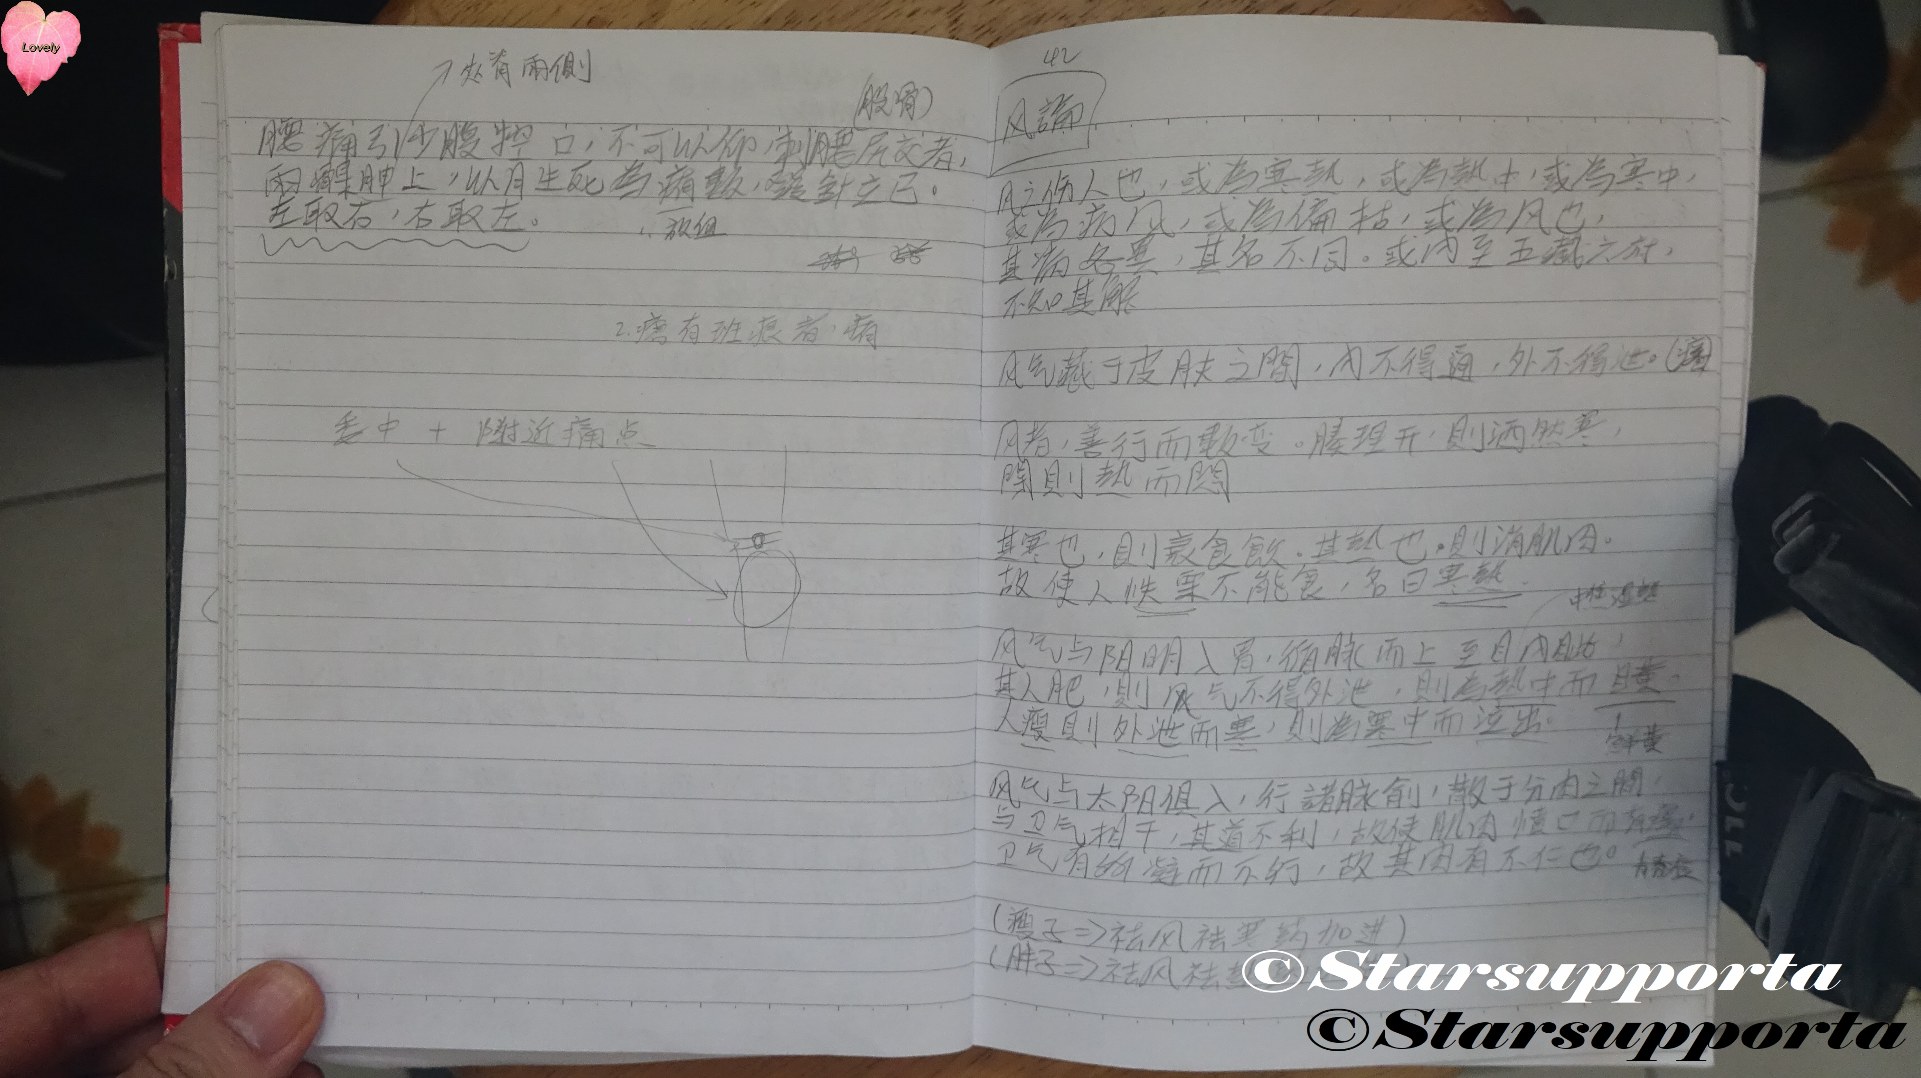 Lovely
处有兩側
(股骨)
腰痛引少腹控口,不可以仰,刺腰尻交者,
兩髁胂上,以月生死為痏數,發針立已。
左取右,右取左。
放血
2.瘡有班痕者,痛
委中 + 附近痛点
42
风論
风之伤人也,或為寒熱,或為熱中,或為寒中,
或為病风,或為偏枯,或為风也,
其病各異,其名不同。或內至五藏六府,
不知其解
风气藏于皮肤之間,内不得通,外不得泄。
风者,善行而數变。腠理开,則洒然寒,
閉則熱而悶
其寒也,則衰食飲。其熱也,則消肌肉。
故使人怢栗不能食,名曰寒熱.
风气与阳明入胃,循脉而上至目内眦,
其人肥,則风气不得外泄,則為熱中而目黃。
人瘦則外泄而寒,則為寒中而泣出.
风气与太阳俱入,行諸脉俞,散于分肉之間,
与卫气相干,其道不利,故使肌肉
卫气有所凝而不行,故其肉有不仁也。
(瘦子=>祛风祛寒药加进)
(胖子=>祛风祛
©Starsupporta
©Starsupporta